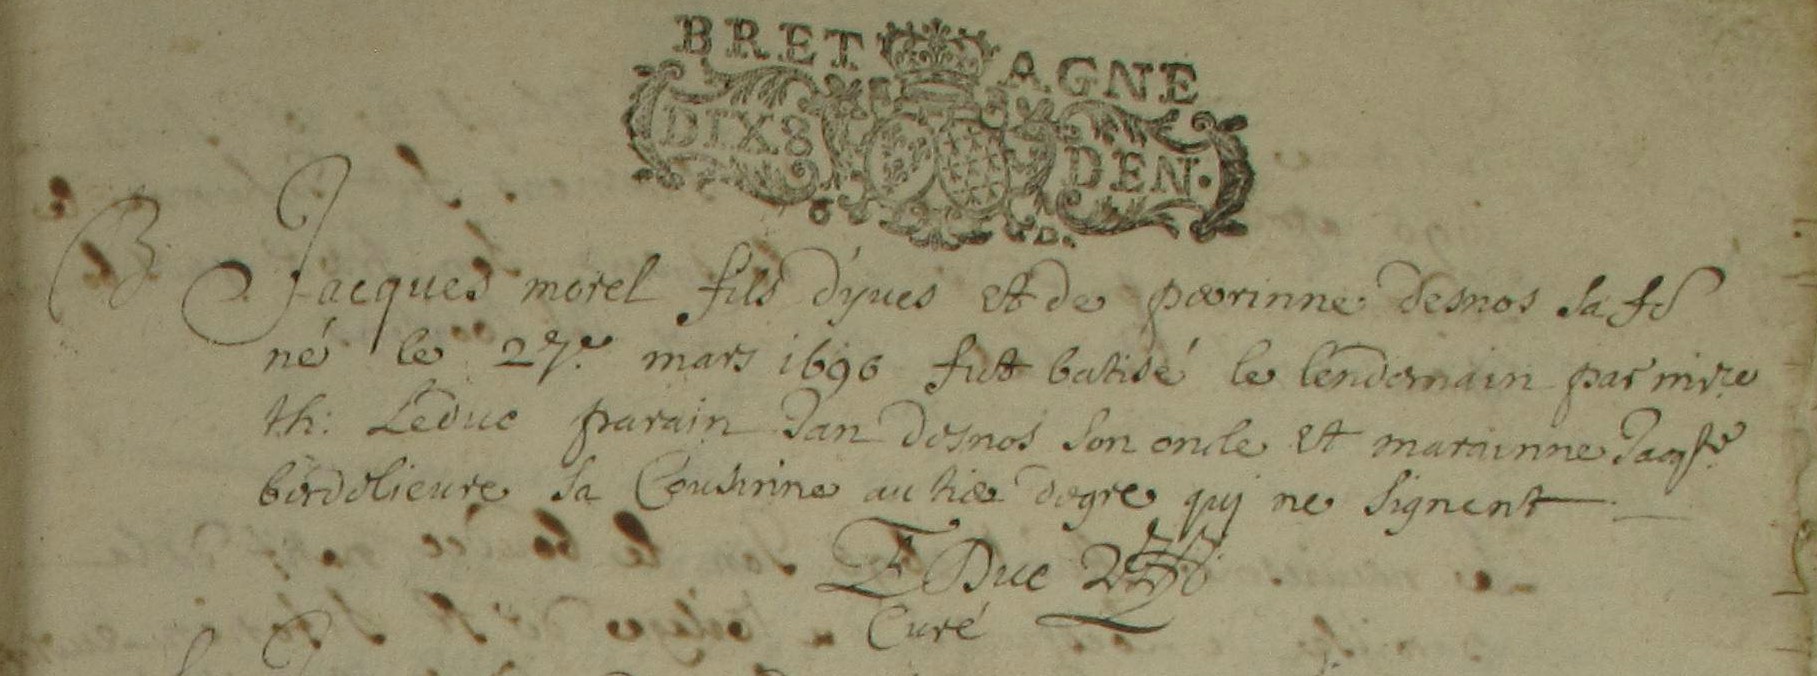 BRETAGNE
DIX 8 DEN.
B Jacques morel fils d'yues et de perrinne desnos sa fe
né le 27e. mars 1696 fut batisé le lendemain par mire
th: Leduc parain Jan desnos son oncle et marainne
sa Cousinne au degre qui ne signent
Duc
Curé